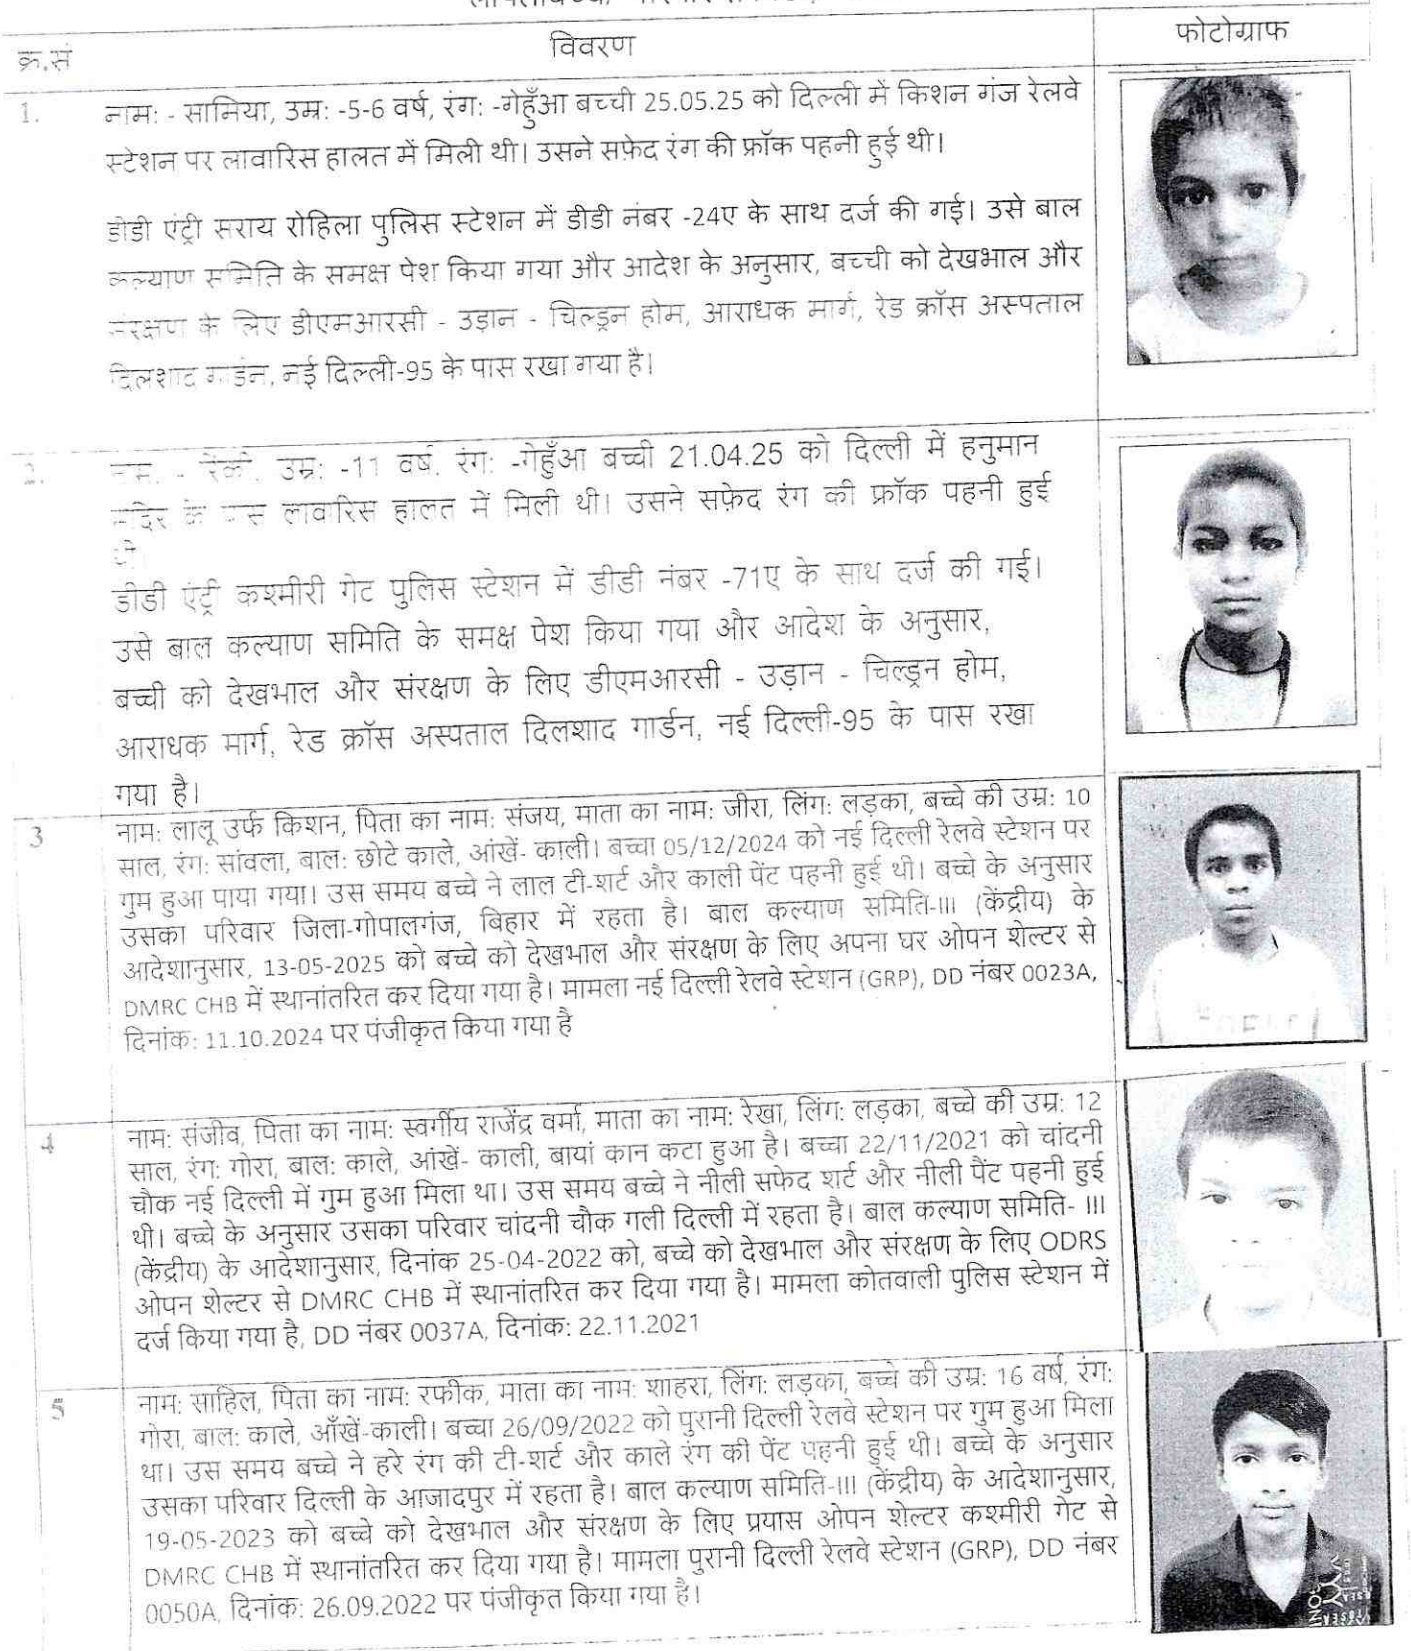 क्र.सं
विवरण
फोटोग्राफ
1.
नाम: - सामिया, उम्र: -5-6 वर्ष, रंग: -गेहुँआ बच्ची 25.05.25 को दिल्ली में किशन गंज रेलवे
स्टेशन पर लावारिस हालत में मिली थी। उसने सफ़ेद रंग की फ्रॉक पहनी हुई थी।
डीडी एंट्री सराय रोहिला पुलिस स्टेशन में डीडी नंबर -24ए के साथ दर्ज की गई। उसे बाल
कल्याण समिति के समक्ष पेश किया गया और आदेश के अनुसार, बच्ची को देखभाल और
संरक्षण के लिए डीएमआरसी - उड़ान - चिल्ड्रन होम, आराधक मार्ग, रेड क्रॉस अस्पताल
दिलशाद गार्डन, नई दिल्ली-95 के पास रखा गया है।
2.
उम्र: -11 वर्ष, रंग: -गेहुँआ बच्ची 21.04.25 को दिल्ली में हनुमान
मंदिर के पास लावारिस हालत में मिली थी। उसने सफ़ेद रंग की फ्रॉक पहनी हुई
थी।
डीडी एंट्री कश्मीरी गेट पुलिस स्टेशन में डीडी नंबर -71ए के साथ दर्ज की गई।
उसे बाल कल्याण समिति के समक्ष पेश किया गया और आदेश के अनुसार,
बच्ची को देखभाल और संरक्षण के लिए डीएमआरसी - उड़ान - चिल्ड्रन होम,
आराधक मार्ग, रेड क्रॉस अस्पताल दिलशाद गार्डन, नई दिल्ली-95 के पास रखा
गया है।
3
नाम: लालू उर्फ किशन, पिता का नाम: संजय, माता का नाम: जीरा, लिंग: लड़का, बच्चे की उम्र: 10
साल, रंग: सांवला, बाल: छोटे काले, आंखें- काली। बच्चा 05/12/2024 को नई दिल्ली रेलवे स्टेशन पर
गुम हुआ पाया गया। उस समय बच्चे ने लाल टी-शर्ट और काली पेंट पहनी हुई थी। बच्चे के अनुसार
उसका परिवार जिला-गोपालगंज, बिहार में रहता है। बाल कल्याण समिति-III (केंद्रीय) के
आदेशानुसार, 13-05-2025 को बच्चे को देखभाल और संरक्षण के लिए अपना घर ओपन शेल्टर से
DMRC CHB में स्थानांतरित कर दिया गया है। मामला नई दिल्ली रेलवे स्टेशन (GRP), DD नंबर 0023A,
दिनांक: 11.10.2024 पर पंजीकृत किया गया है
4
नाम: संजीव, पिता का नाम: स्वर्गीय राजेंद्र वर्मा, माता का नाम: रेखा, लिंग: लड़का, बच्चे की उम्र: 12
साल, रंग: गोरा, बाल: काले, आंखें- काली, बायां कान कटा हुआ है। बच्चा 22/11/2021 को चांदनी
चौक नई दिल्ली में गुम हुआ मिला था। उस समय बच्चे ने नीली सफेद शर्ट और नीली पैंट पहनी हुई
थी। बच्चे के अनुसार उसका परिवार चांदनी चौक गली दिल्ली में रहता है। बाल कल्याण समिति- III
(केंद्रीय) के आदेशानुसार, दिनांक 25-04-2022 को, बच्चे को देखभाल और संरक्षण के लिए ODRS
ओपन शेल्टर से DMRC CHB में स्थानांतरित कर दिया गया है। मामला कोतवाली पुलिस स्टेशन में
दर्ज किया गया है, DD नंबर 0037A, दिनांक: 22.11.2021
5
नाम: साहिल, पिता का नाम: रफीक, माता का नाम: शाहरा, लिंग: लड़का, बच्चे की उम्र: 16 वर्ष, रंग:
गोरा, बाल: काले, आँखें-काली। बच्चा 26/09/2022 को पुरानी दिल्ली रेलवे स्टेशन पर गुम हुआ मिला
था। उस समय बच्चे ने हरे रंग की टी-शर्ट और काले रंग की पेंट पहनी हुई थी। बच्चे के अनुसार
उसका परिवार दिल्ली के आजादपुर में रहता है। बाल कल्याण समिति-III (केंद्रीय) के आदेशानुसार,
19-05-2023 को बच्चे को देखभाल और संरक्षण के लिए प्रयास ओपन शेल्टर कश्मीरी गेट से
DMRC CHB में स्थानांतरित कर दिया गया है। मामला पुरानी दिल्ली रेलवे स्टेशन (GRP), DD नंबर
0050A, दिनांक: 26.09.2022 पर पंजीकृत किया गया है।